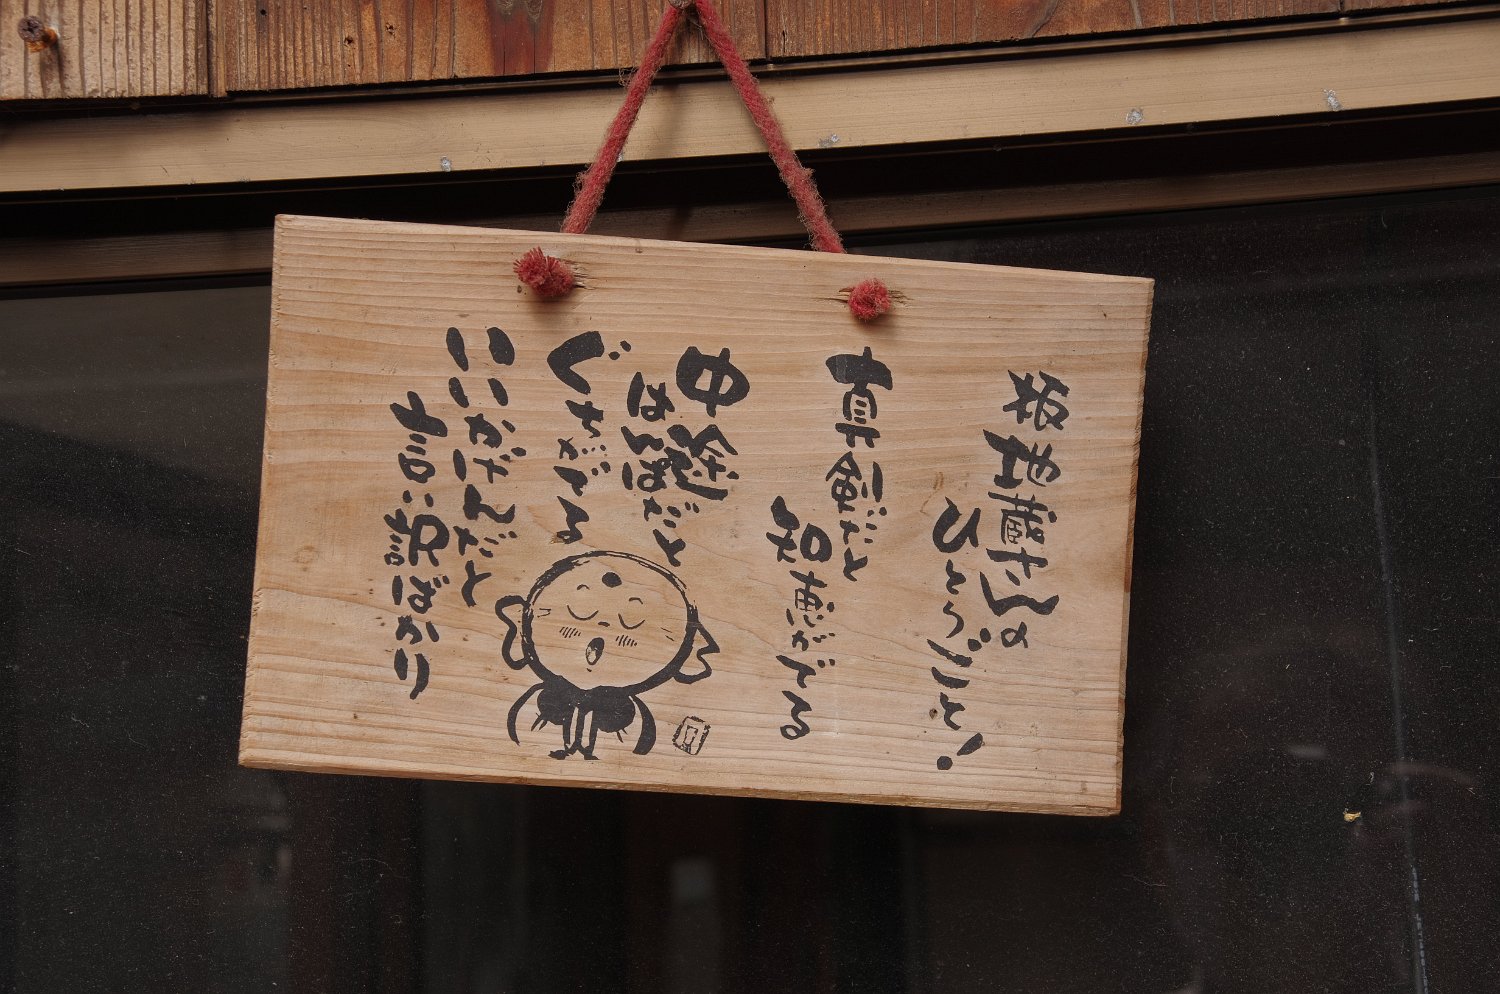 板地蔵さんの
ひとりごと!
真剣だと
知恵がでる
中途
はんぱだと
ぐちがでる
いいかげんだと
言い訳ばかり